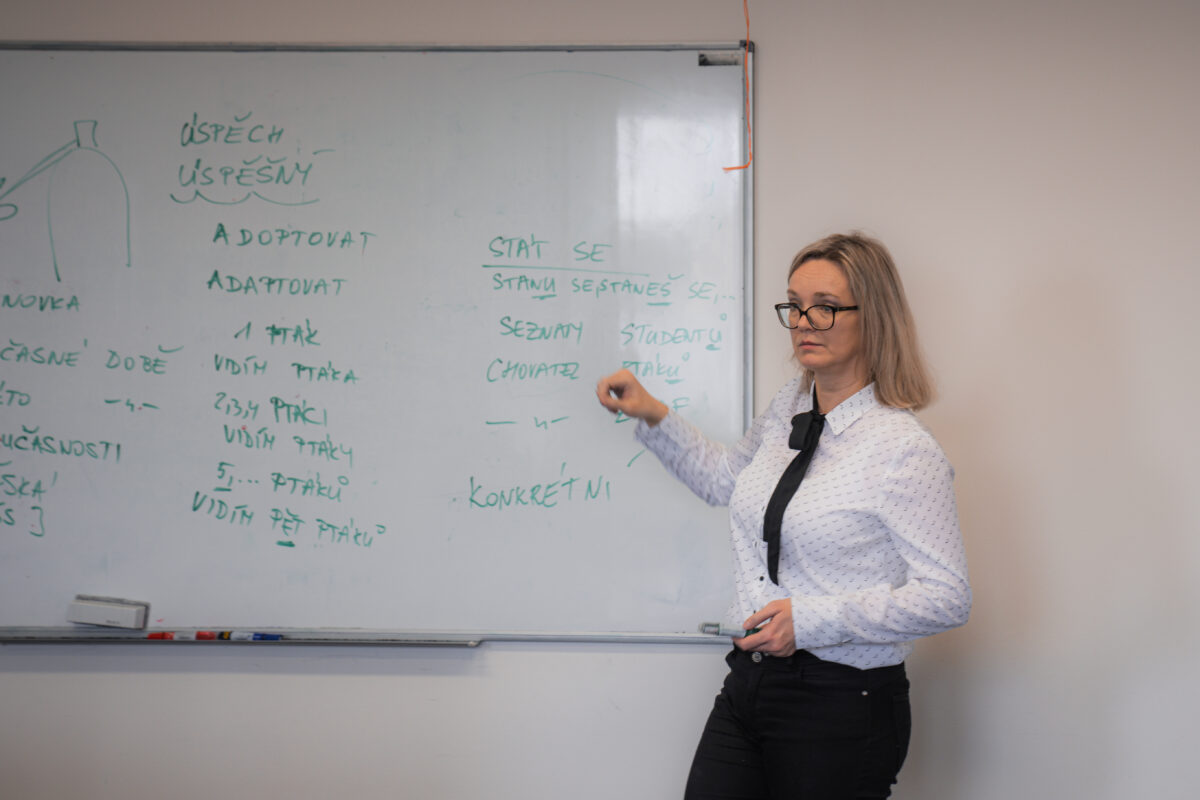 ÚSPĚCH
ÚSPĚŠNÝ
ADOPTOVAT
ADAPTOVAT
1 PTÁK
VIDÍM PTÁKA
2,3,4 PTÁCI
VIDÍM PTÁKY
5,... PTÁKŮ
VIDÍM PĚT PTÁKŮ
NOVKA
ČASNÉ DOBĚ
ÉTO —〃—
UČASNOSTI
STÁT SE
STANU SE, STANEŠ SE,...
SEZNAM STUDENTŮ
CHOVATEL PTÁKŮ
—〃—
KONKRÉTNI